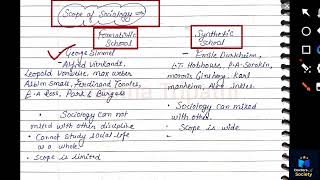 Scope of Sociology ⇒
Formalistic School
Synthetic School
- George Simmel
- Alfred Vinkandt,
Leopold Vonwise, max weber
Albion Small, Ferdinand Tonnies,
E.A Ross, Park & Burgess
- Emile Durkheim,
L.T. Hobhouse, P.A. Sorokin,
morris Ginsberg, Karl
manheim, Alex Inkles.
• Sociology can not
mixed with other discipline
• Cannot study social life
as a whole
• Scope is limited
• Sociology can mixed
with other.
• Scope is wide
Doctors of
Society